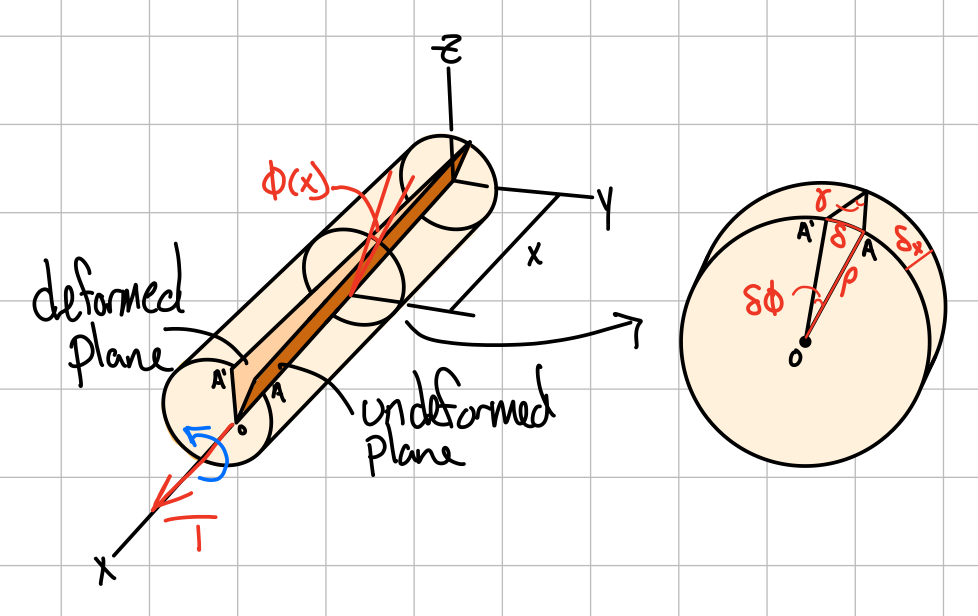 z
ϕ(x)
Y
x
deformed
plane
A'
A
O
undeformed
plane
T
X
γ
A'
δ
A
δx
δϕ
ρ
O